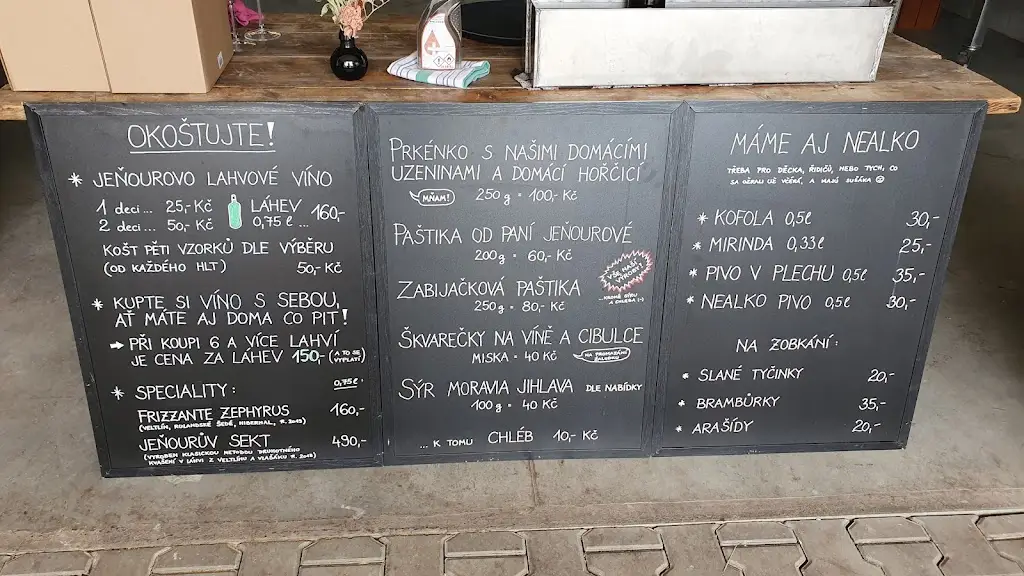 OKOŠTUJTE!
* JEŇOUROVO LAHVOVÉ VÍNO
1 deci... 25,- Kč
2 deci... 50,- Kč
LÁHEV 0,75 ℓ ... 160,-
KOŠT PĚTI VZORKŮ DLE VÝBĚRU
(OD KAŽDÉHO HLT) 50,- Kč
* KUPTE SI VÍNO S SEBOU,
AŤ MÁTE AJ DOMA CO PIT!
→ PŘI KOUPI 6 A VÍCE LAHVÍ
JE CENA ZA LÁHEV 150,- (A TO SE VYPLATÍ)
* SPECIALITY: 0,75ℓ
FRIZZANTE ZEPHYRUS 160,-
(VELTLÍN, ROLANDSKÉ ŠEDÉ, HIBERNAL, R. 2019)
JEŇOURŮV SEKT 490,-
(VYROBEN KLASICKOU METODOU DRUHOTNÉHO
KVAŠENÍ V LÁHVI Z VELTLÍNU A VLAŠÁKU R. 2018)
PRKÉNKO S NAŠIMI DOMÁCÍMI
UZENINAMI A DOMÁCÍ HOŘČICÍ
MŇAM! 250 g = 100,- Kč
PAŠTIKA OD PANÍ JEŇOUROVÉ
200g = 60,- Kč
ZABIJAČKOVÁ PAŠTIKA
250g = 80,- Kč
ŠKVAREČKY NA VÍNĚ A CIBULCE
MISKA = 40 Kč
SÝR MORAVIA JIHLAVA DLE NABÍDKY
100g = 40 Kč
... K TOMU CHLÉB 10,- Kč
MÁME AJ NEALKO
TŘEBA PRO DĚCKA, ŘIDIČŮ, NEBO TYCH, CO
SA OŽRALI UŽ VČERÁ, A MAJÚ SUŠÁKA ☹
* KOFOLA 0,5ℓ 30,-
* MIRINDA 0,33ℓ 25,-
* PIVO V PLECHU 0,5ℓ 35,-
* NEALKO PIVO 0,5ℓ 30,-
NA ZOBKÁNÍ:
* SLANÉ TYČINKY 20,-
* BRAMBŮRKY 35,-
* ARAŠÍDY 20,-